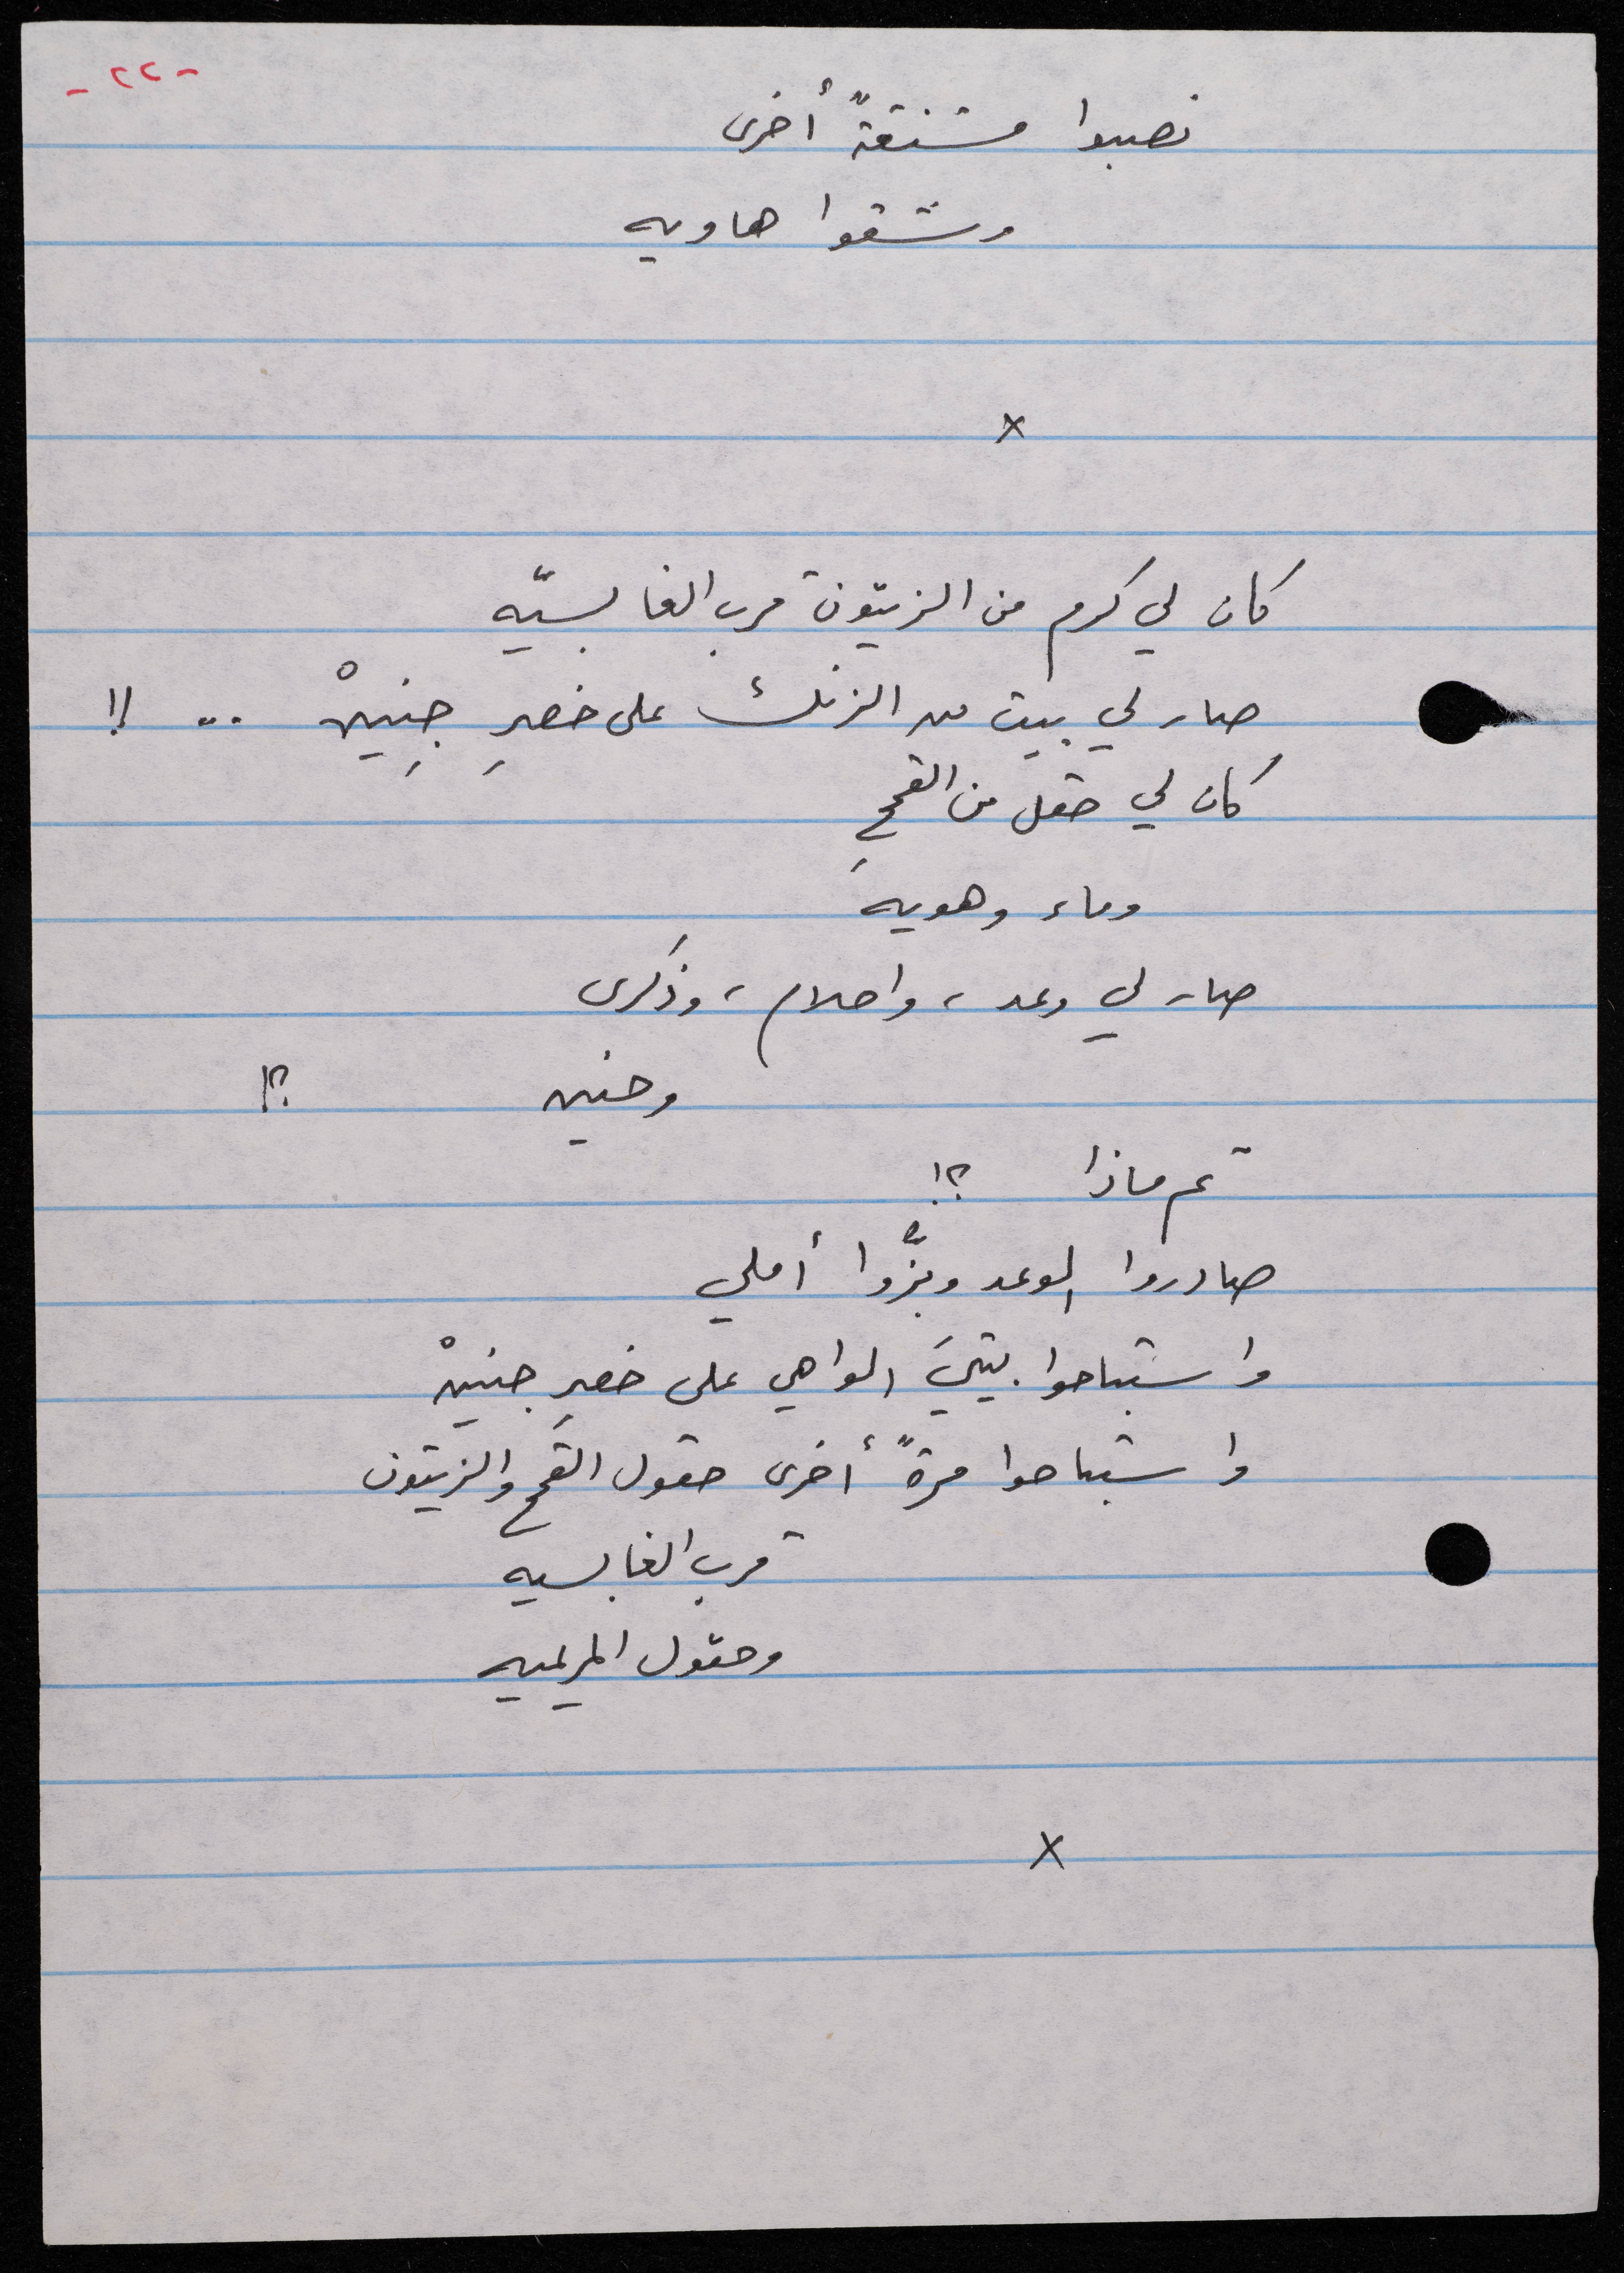 - ٢٢ -
نصبوا مشنقةً أخرى
وشقوا هاويه
x
كان لي كرم من الزيتون قرب الغابسيّه
صار لي بيت من الزنك على خصرِ جِنينْ .. !!
كان لي حقل من القمحِ
وماء وهويه
صار لي وعد ، واحلام ، وذكرى
وحنين ؟!
ثم ماذا ؟!
صادروا الوعد وبزُّوا أملي
واستباحوا بيتيَ الواهي على خصرِ جنينْ
واستباحوا مرةً أخرى حقول القمح والزيتون
قرب الغابسيه
وحقول المريميه
x